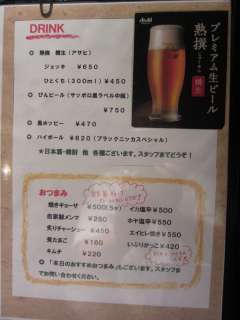 DRINK
◎ 熟撰 樽生（アサヒ）
ジョッキ ￥650
ひとくち（300ml）￥450
◎ びんビール（サッポロ黒ラベル中瓶）
￥750
◎ 黒ホッピー ￥470
◎ ハイボール ￥620（ブラックニッカスペシャル）
★日本酒・焼酎 他 各種ございます。スタッフまでどうぞ！
Asahi
プレミアム生ビール
熟撰
樽生
おつまみ
焼きギョーザ ￥500（5ヶ）
自家製メンマ ￥250
炙りチャーシュー ￥450
煮たまご ￥160
キムチ ￥220
イカ塩辛 ￥500
ホヤ塩辛 ￥500
エイヒレ焼き ￥550
いぶりがっこ ￥420
「本日のおすすめおつまみ」もございます。スタッフまで
お問い合わせください。